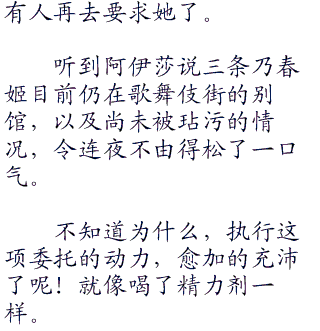 有人再去要求她了。
听到阿伊莎说三条乃春
姬目前仍在歌舞伎街的别
馆，以及尚未被玷污的情
况，令连夜不由得松了一口
气。
不知道为什么，执行这
项委托的动力，愈加的充沛
了呢！就像喝了精力剂一
样。